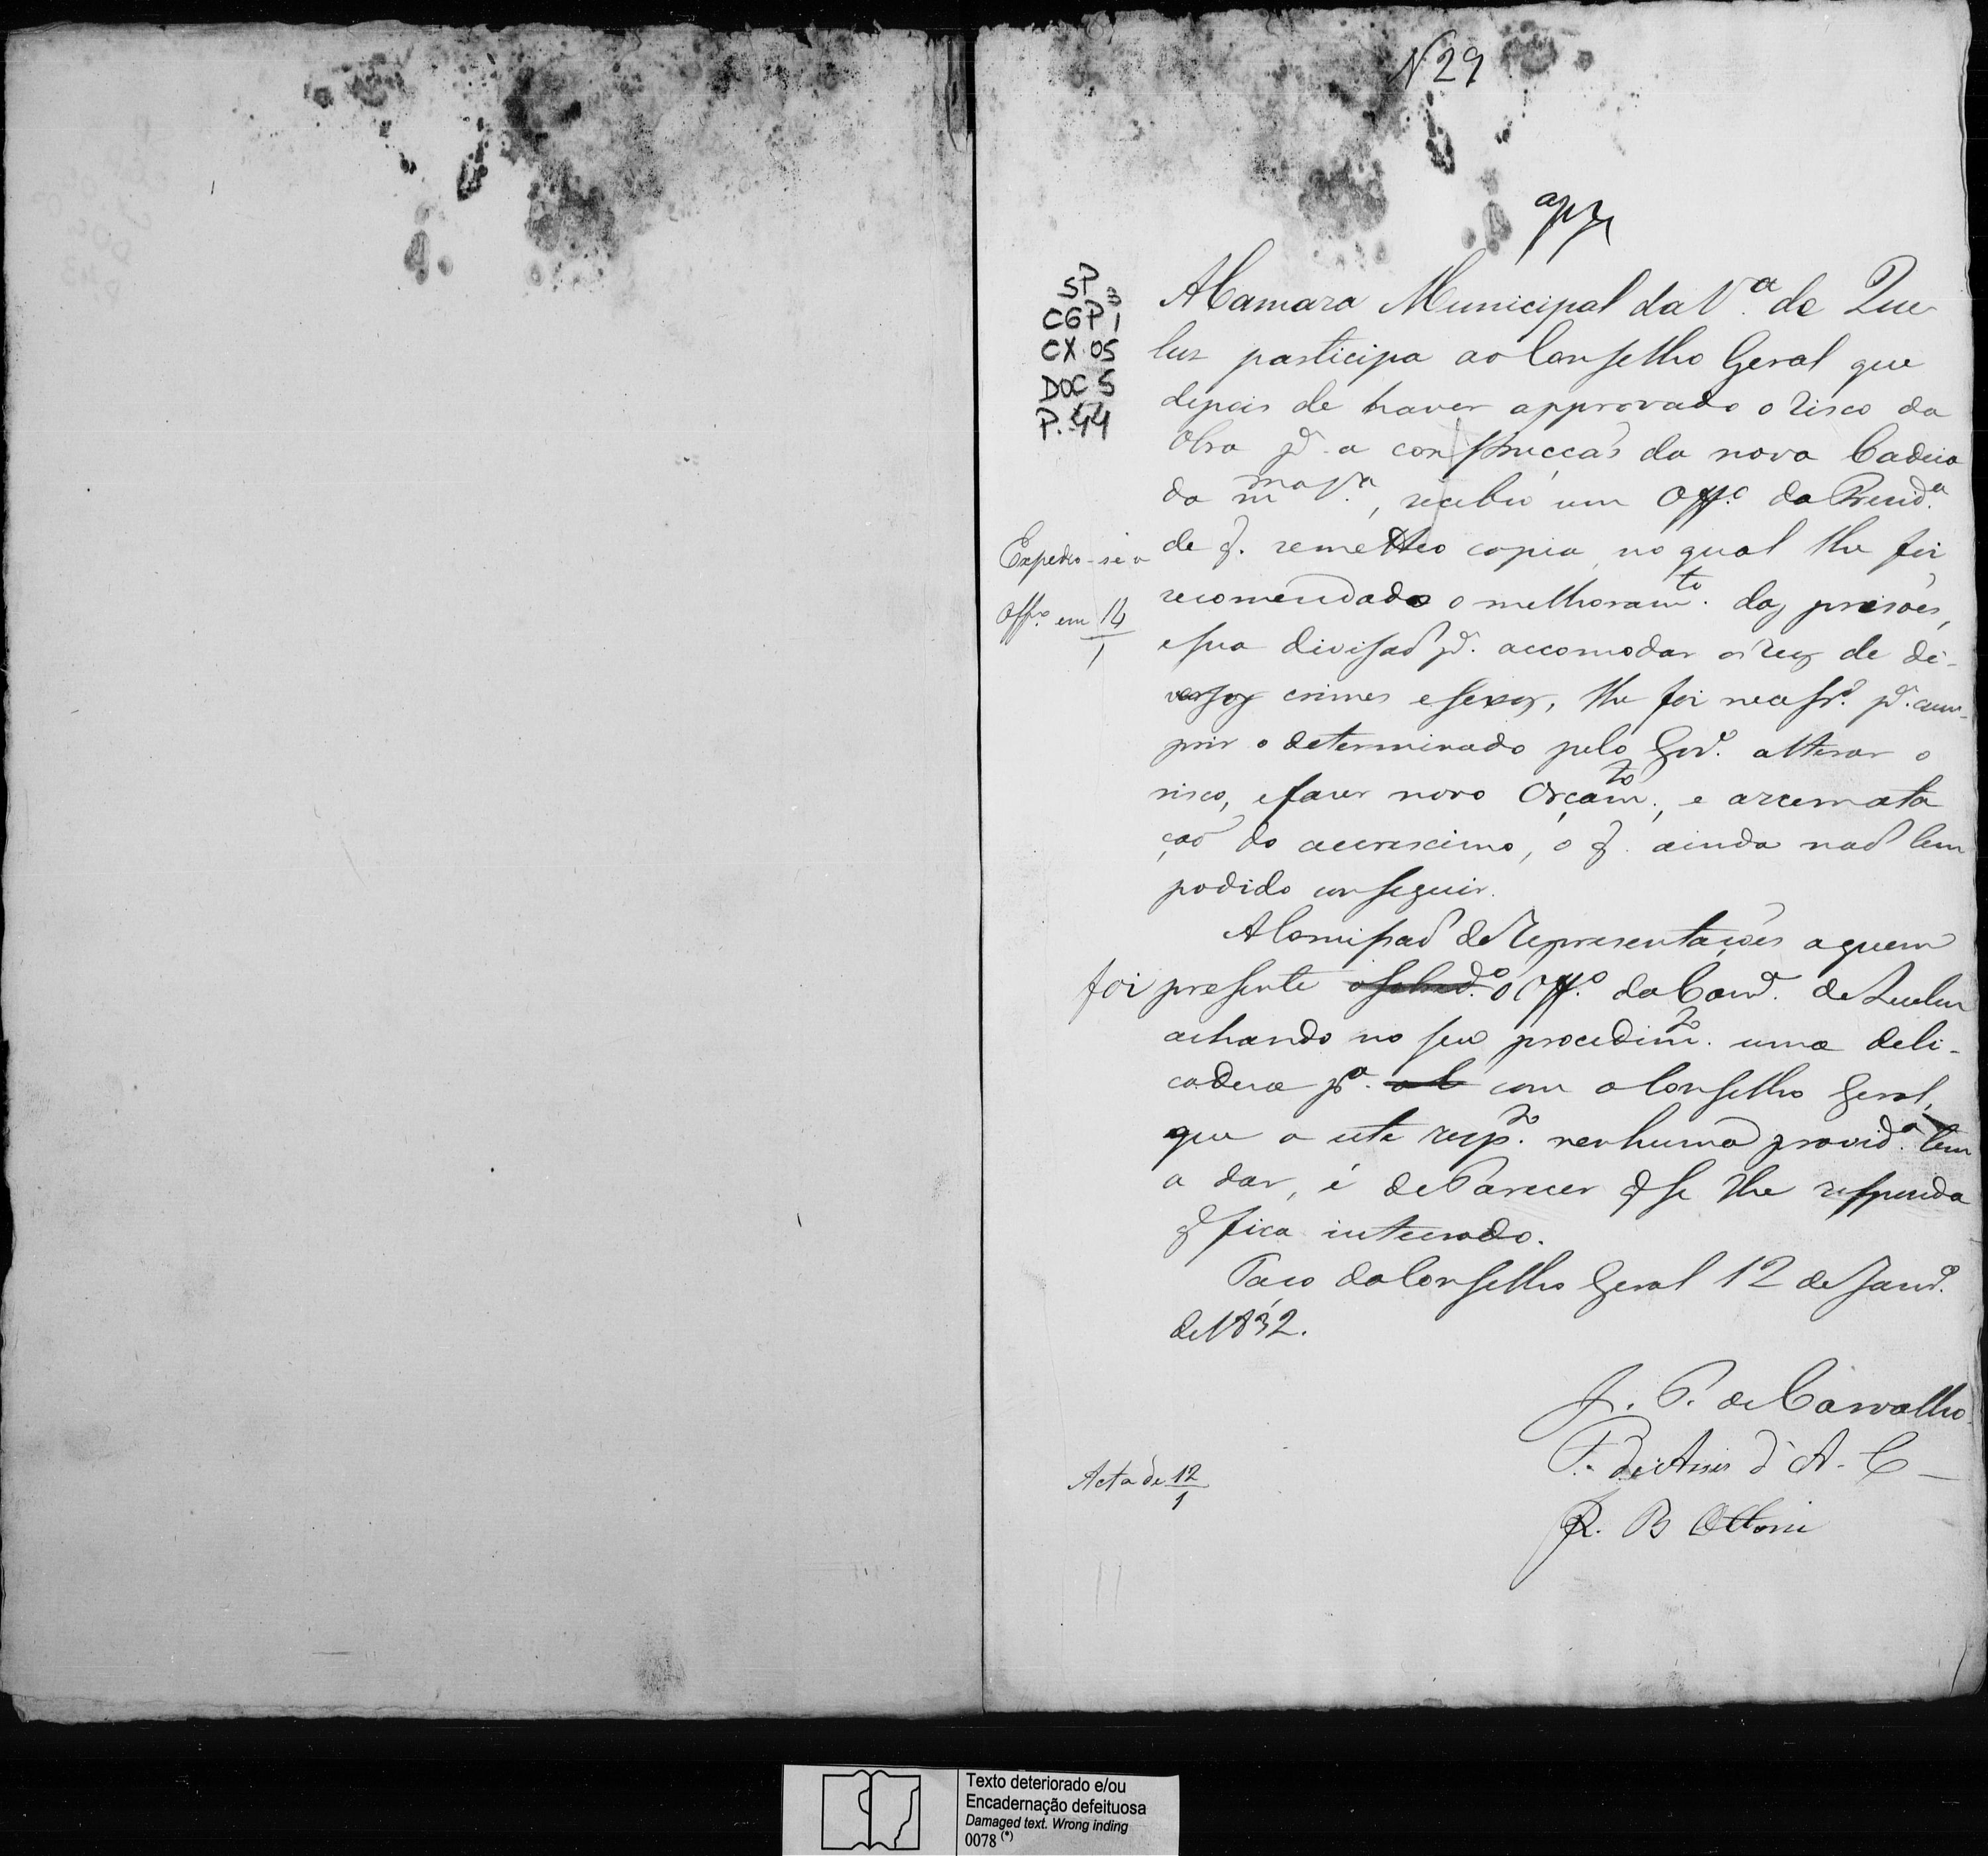 N 29
SP
CGP 1 3
CX. 05
DOC 5
P. 44
A Camara Municipal da V.ª de Que
luz participa ao Conselho Geral que
depois de haver approvado o risco da
Obra p.ª a construcçaõ da nova Cadeia
da m.ma V.ª, recebeu um Off.º da Presid.ª
de q. remetteo copia, no qual lhe foi
recomendado o melhoram.to das prisões,
e sua divisaõ p.ª accomodar os reos de di-
versos crimes e sexos, lhe foi necessr.º p.ª cum-
prir o determinado pelo Gov.º alterar o
risco, e fazer novo Orçam.to, e arremata
çaõ do accrescimo, o q. ainda naõ tem
podido conseguir.
Expedio-se o
Off.º em 14/1
A Comissaõ de Representações a quem
foi presente o Off.º da Cam.ª de Queluz
achando no seu procedim.to uma deli-
cadeza p.ª com o Conselho Geral,
que a este resp.to nenhuma provid.ª tem
a dar, é de Parecer q se lhe responda
q fica inteirado.
Paço do Conselho Geral 12 de Janr.º
de 1832.
J. P. de Carvalho
F. de Assis d' A. C
R. B Ottoni
Acta de 12/1
Texto deteriorado e/ou
Encadernação defeituosa
Damaged text. Wrong inding
0078 (*)